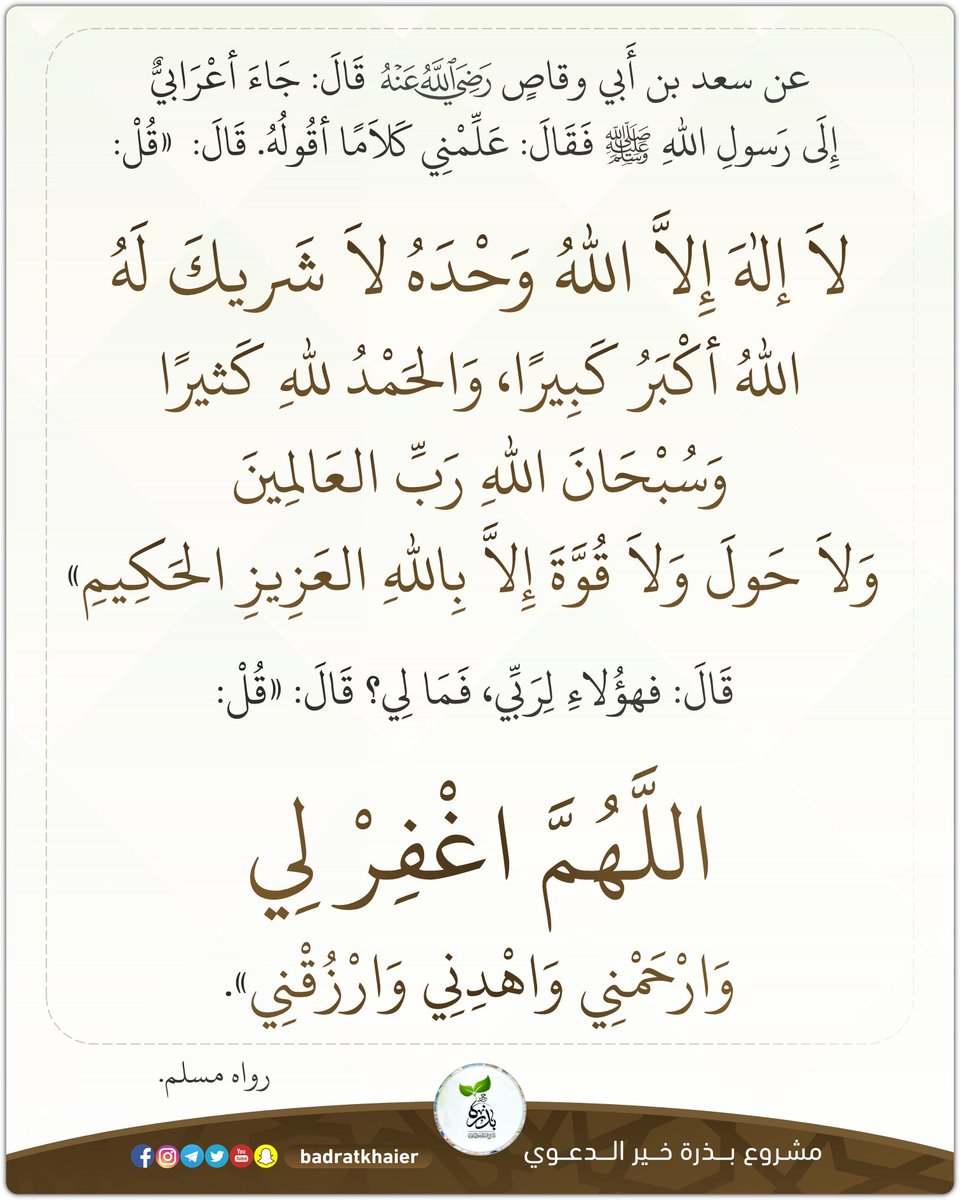 عن سعد بن أَبي وقاصٍ رَضِيَ اللَّهُ عَنْهُ قَالَ: جَاءَ أعْرَابيٌّ
إِلَى رَسولِ اللهِ ﷺ فَقَالَ: عَلِّمْنِي كَلَامًا أقُولُهُ. قَالَ: «قُلْ:
لاَ إلٰهَ إِلاَّ اللهُ وَحْدَهُ لاَ شَريكَ لَهُ
اللهُ أكْبَرُ كَبِيرًا، وَالحَمْدُ للهِ كَثيرًا
وَسُبْحَانَ اللهِ رَبِّ العَالِمِينَ
وَلاَ حَولَ وَلاَ قُوَّةَ إِلاَّ بِاللهِ العَزِيزِ الحَكِيمِ»
قَالَ: فهؤُلاءِ لِرَبِّي، فَمَا لِي؟ قَالَ: «قُلْ:
اللَّهُمَّ اغْفِرْ لِي
وَارْحَمْنِي وَاهْدِنِي وَارْزُقْنِي».
رواه مسلم.
مشروع بــذرة خــير الــدعــوي
badratkhaier